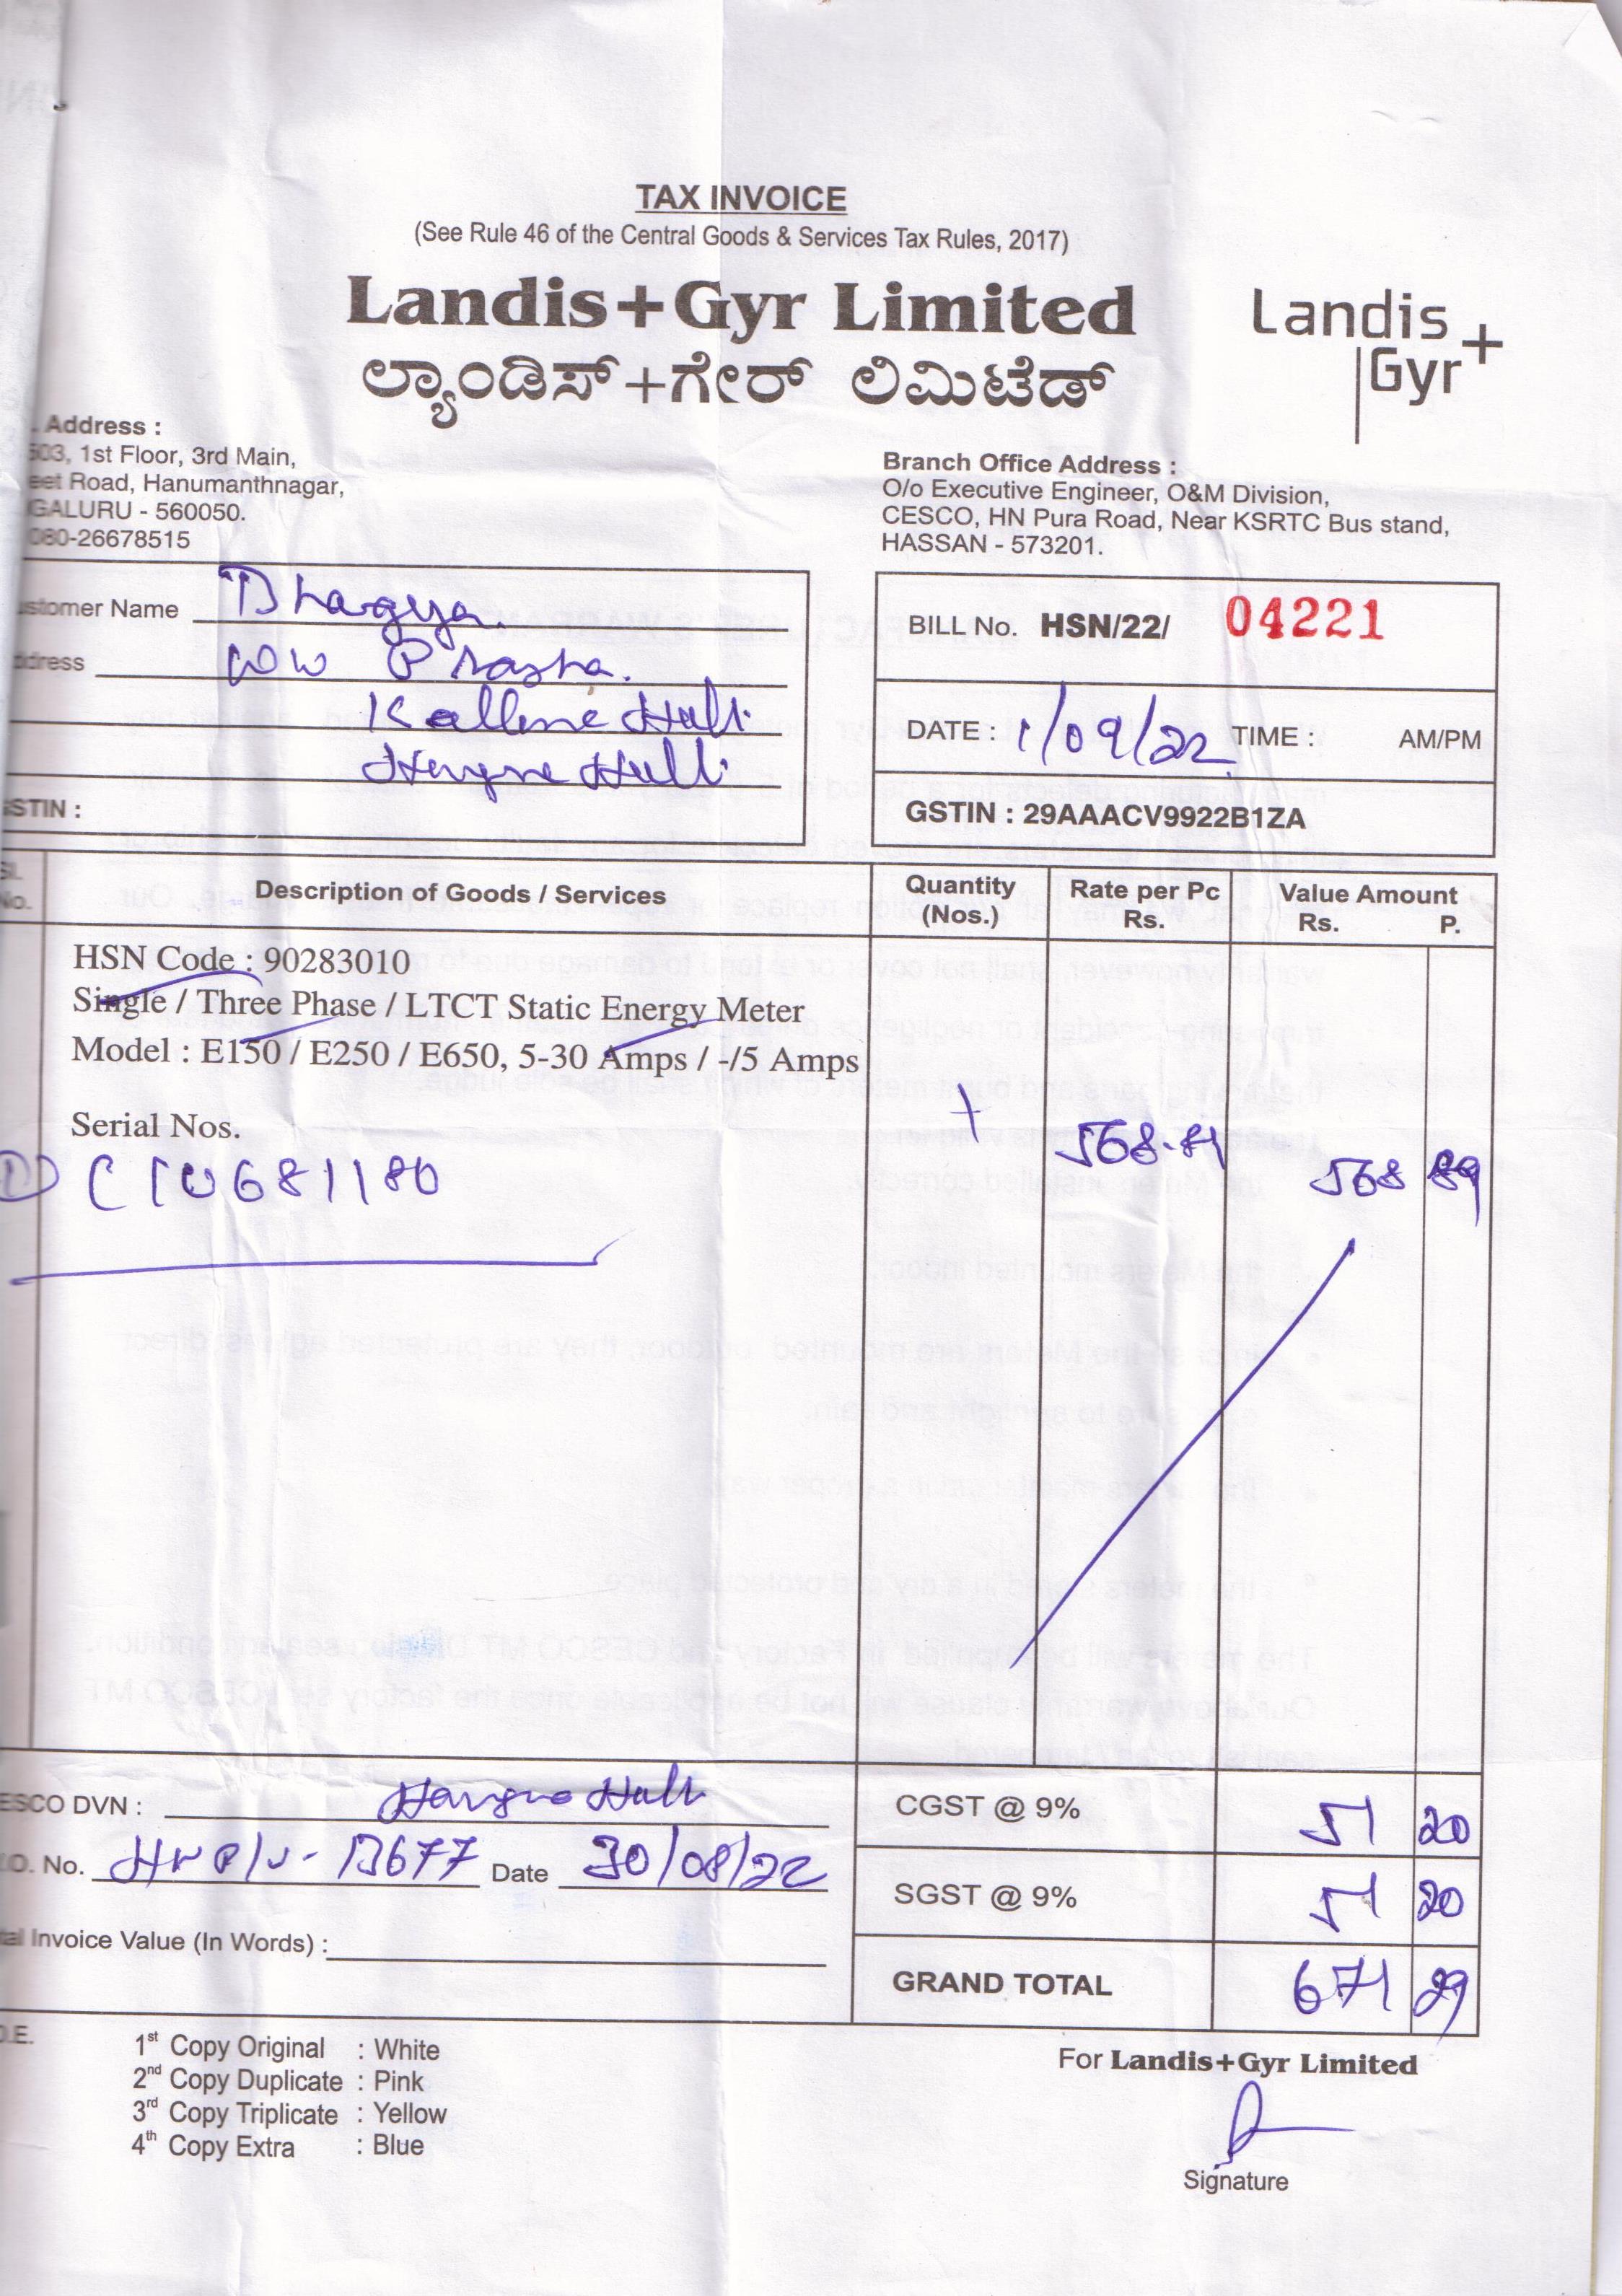 TAX INVOICE
(See Rule 46 of the Central Goods & Services Tax Rules, 2017)
Landis+Gyr Limited
ಲ್ಯಾಂಡಿಸ್+ಗೇರ್ ಲಿಮಿಟೆಡ್
Landis+
Gyr
Address :
503, 1st Floor, 3rd Main,
eet Road, Hanumanthnagar,
GALURU - 560050.
080-26678515
Branch Office Address :
O/o Executive Engineer, O&M Division,
CESCO, HN Pura Road, Near KSRTC Bus stand,
HASSAN - 573201.
ustomer Name Bhagya.
ddress
STIN :
BILL No. HSN/22/ 04221
DATE : 1/09/22 TIME : AM/PM
GSTIN : 29AAACV9922B1ZA
Sl. No. Description of Goods / Services Quantity (Nos.) Rate per Pc Rs. Value Amount Rs. P.
HSN Code : 90283010
Single / Three Phase / LTCT Static Energy Meter
Model : E150 / E250 / E650, 5-30 Amps / -/5 Amps
Serial Nos.
568 89
681180
ESCO DVN :
CGST @ 9% 51 20
.O. No. Date 30/08/22
SGST @ 9% 51 20
tal Invoice Value (In Words) :
GRAND TOTAL 671 29
O.E.
1st Copy Original : White
2nd Copy Duplicate : Pink
3rd Copy Triplicate : Yellow
4th Copy Extra : Blue
For Landis+Gyr Limited
Signature